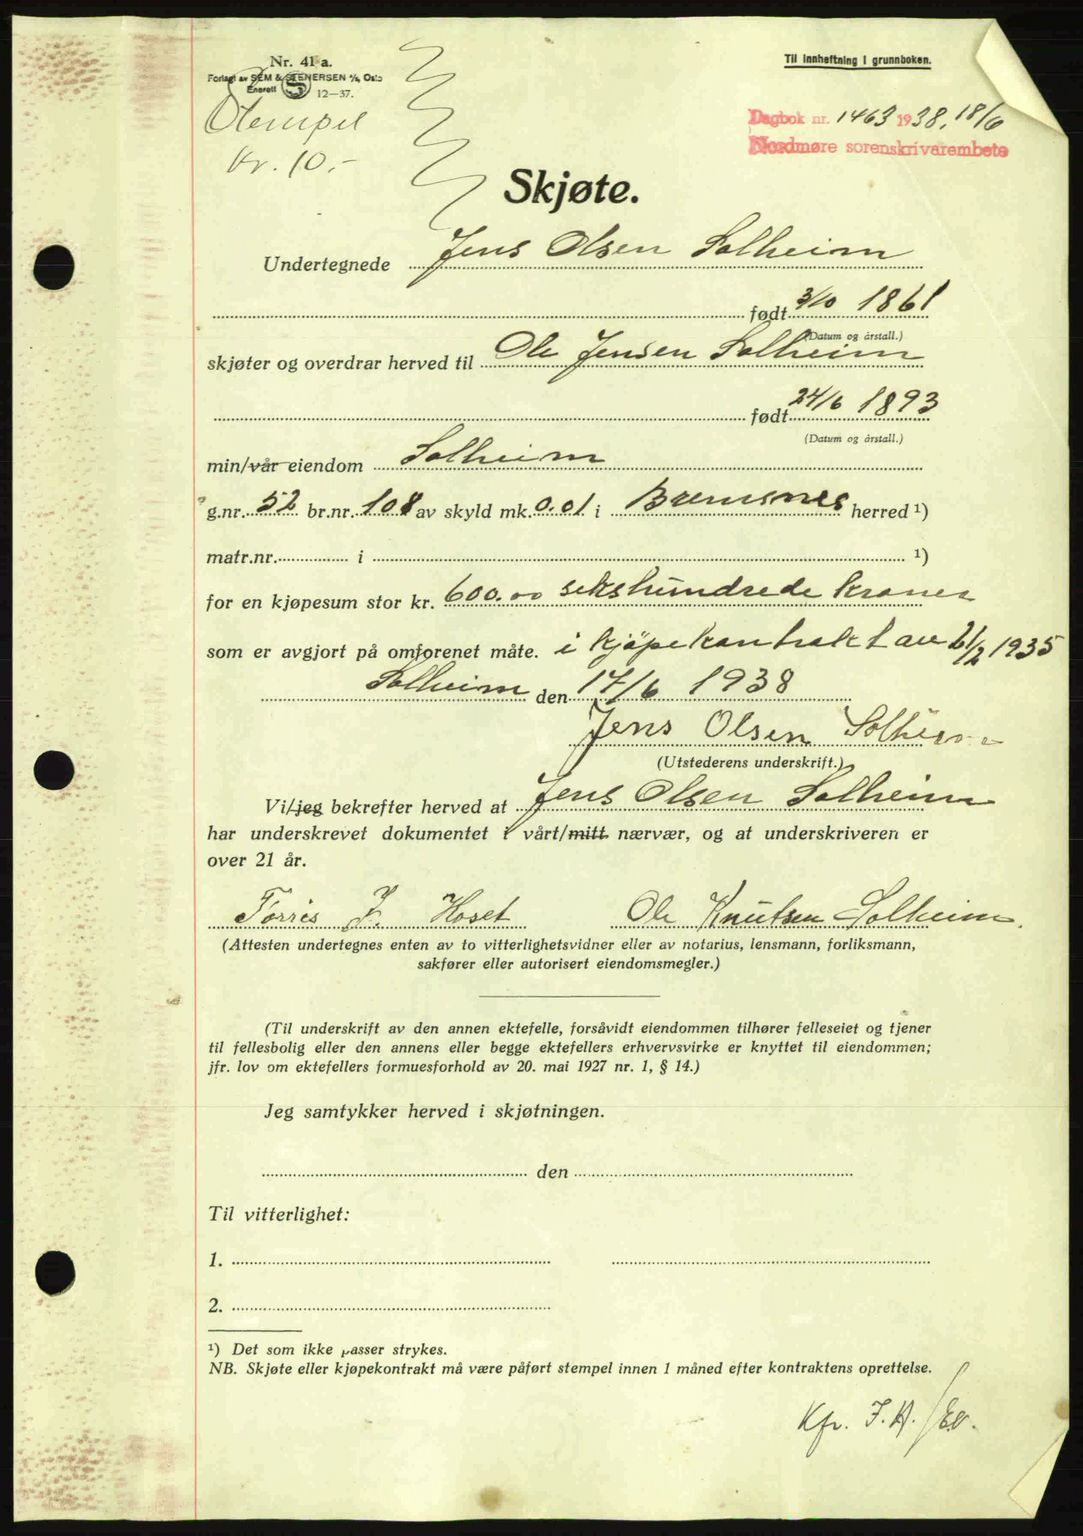 Nr. 41 a.
Forlagt av SEM & STENERSEN A/S, Oslo
Enerett S 12—37.
Til innheftning i grunnboken.
Stempel
Kr. 10.-
Dagbok nr. 1463 1938, 18/6
Nordmøre sorenskriverembete
Skjøte.
Undertegnede Jens Olsen Solheim
født 3/10 1861
(Datum og årstall.)
skjøter og overdrar herved til Ole Jensen Solheim
født 24/6 1893
(Datum og årstall.)
min/vår eiendom Solheim
g.nr. 52 br.nr. 108 av skyld mk. 0.01 i Bremsnes herred ¹)
matr.nr. i ¹)
for en kjøpesum stor kr. 600.00 sekshundrede kroner
som er avgjort på omforenet måte. i kjøpekontrakt av 21/2 1935
Solheim den 17/6 1938
Jens Olsen Solheim
(Utstederens underskrift.)
Vi/jeg bekrefter herved at Jens Olsen Solheim
har underskrevet dokumentet i vårt/mitt nærvær, og at underskriveren er
over 21 år.
Torris J. Hoset Ole Knutsen Solheim.
(Attesten undertegnes enten av to vitterlighetsvidner eller av notarius, lensmann, forliksmann,
sakfører eller autorisert eiendomsmegler.)
(Til underskrift av den annen ektefelle, forsåvidt eiendommen tilhører felleseiet og tjener
til fellesbolig eller den annens eller begge ektefellers erhvervsvirke er knyttet til eiendommen;
jfr. lov om ektefellers formuesforhold av 20. mai 1927 nr. 1, § 14.)
Jeg samtykker herved i skjøtningen.
den
Til vitterlighet:
1.
2.
¹) Det som ikke passer strykes.
NB. Skjøte eller kjøpekontrakt må være påført stempel innen 1 måned efter kontraktens oprettelse.
Kfr. J.H./E.O.